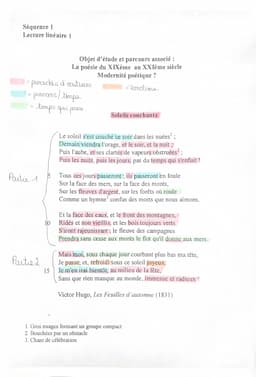 Séquence 1
Lecture linéaire 1
Objet d'étude et parcours associé :
La poésie du XIXème au XXIème siècle
Modernité poétique ?
= procédés d'écriture
= émotions
= passons / temps
= temps qui passe
Soleils couchants
Le soleil s'est couché ce soir dans les nuées¹ ;
Demain viendra l'orage, et le soir, et la nuit ;
Puis l'aube, et ses clartés de vapeurs obstruées² ;
Puis les nuits, puis les jours, pas du temps qui s'enfuit !
Partie 1
5 Tous ces jours passeront ; ils passeront en foule
Sur la face des mers, sur la face des monts,
Sur les fleuves d'argent, sur les forêts où roule
Comme un hymne³ confus des morts que nous aimons.
Et la face des eaux, et le front des montagnes,
10 Ridés et non vieillis, et les bois toujours verts
S'iront rajeunissant ; le fleuve des campagnes
Prendra sans cesse aux monts le flot qu'il donne aux mers.
Partie 2
Mais moi, sous chaque jour courbant plus bas ma tête,
Je passe, et, refroidi sous ce soleil joyeux,
15 Je m'en irai bientôt, au milieu de la fête,
Sans que rien manque au monde, immense et radieux !
Victor Hugo, Les Feuilles d'automne (1831)
1. Gros nuages formant un groupe compact
2. Bouchées par un obstacle
3. Chant de célébration